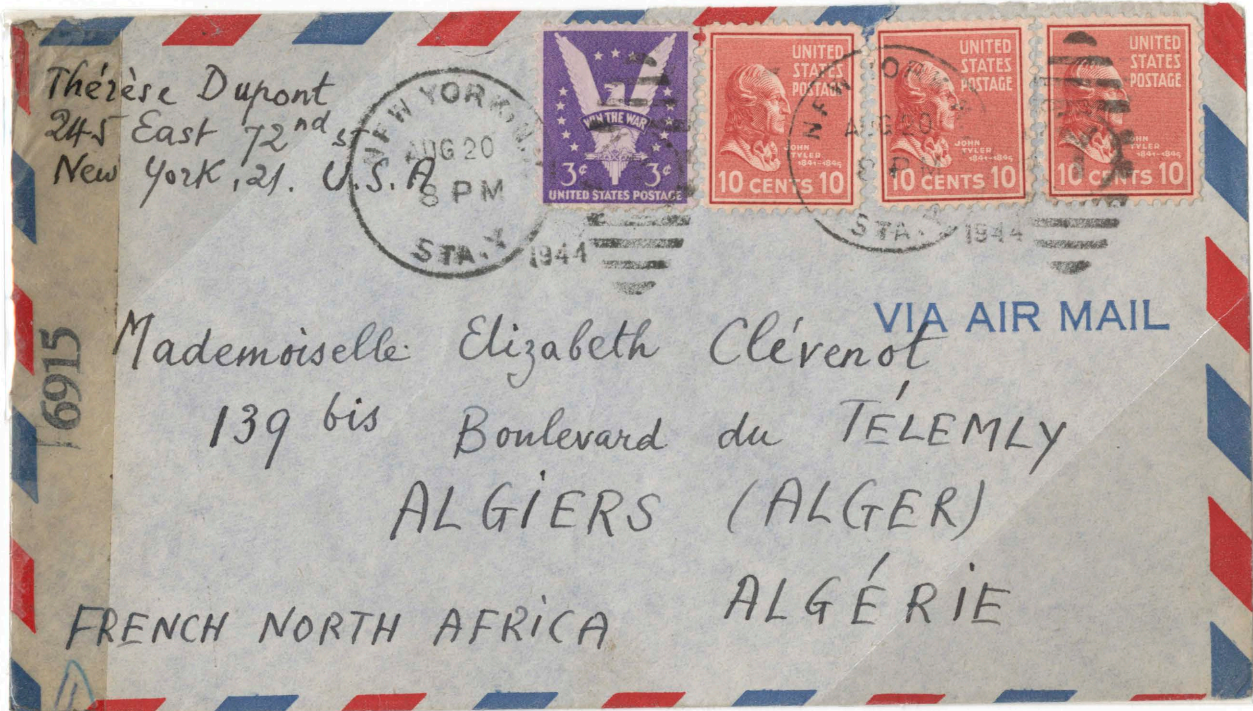 Thérèse Dupont
245 East 72nd st
New York, 21. U.S.A
NEW YORK, N.Y.
AUG 20
8 PM
STA. Y
1944
WIN THE WAR
3¢ 3¢
UNITED STATES POSTAGE
UNITED
STATES
POSTAGE
JOHN
TYLER
1841-1845
10 CENTS 10
NEW YORK, N.Y.
AUG 20
8 PM
STA. Y
1944
UNITED
STATES
POSTAGE
JOHN
TYLER
1841-1845
10 CENTS 10
UNITED
STATES
POSTAGE
10 CENTS 10
VIA AIR MAIL
6915
Mademoiselle Elizabeth Clévenot
139 bis Boulevard du TÉLEMLY
ALGIERS (ALGER)
ALGÉRIE
FRENCH NORTH AFRICA